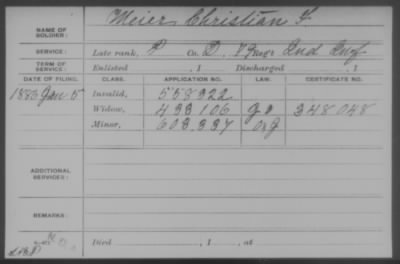 NAME OF SOLDIER: Meier, Christian F
SERVICE: Late rank, P Co. D, 79 Reg't Ind Inf
TERM OF SERVICE: Enlisted , 1 Discharged , 1
DATE OF FILING. CLASS. APPLICATION NO. LAW. CERTIFICATE NO.
1885 Jan 5 Invalid, 558322
Widow, 433106 348048
Minor, 608337
ADDITIONAL SERVICES:
REMARKS:
Died , 1 , at